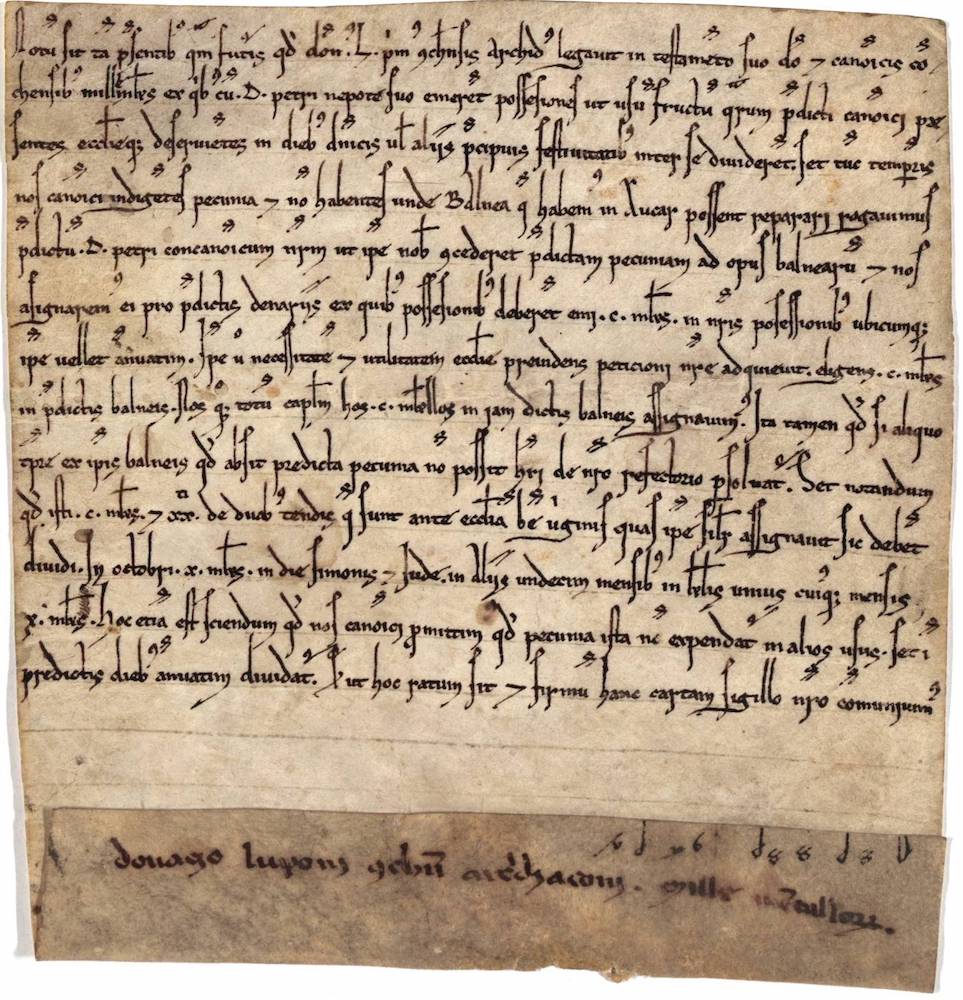 Notu sit ta psentib' qm futis qd don. L. pm 9chnsis Archid' legavit in testameto suo do 7 canoicis co
chensib' mille mbtis ex qb' cu. D. petri nepote suo emeret possesiones ut usu fructu qrum pdicti canoici pre
sentes ecclieq; deservietes in dieb' dnicis ul aliis pcipuis festivitatib' inter se divideret. set tuc temporis
nos canoici indigetes pecunia 7 no habentes unde Balnea q habem' in Aucar possent reparari rogavimus
pdictu. D. petri concanoicum nrm ut ipe nob' 9cederet pdictam pecuniam ad opus balnearu 7 nos
asignarem' ei pro pdictis denariis ex quib' possesionib' deberet emi. c. mbtis. in nris posessionib' ubicumq;
ipe vellet anuatim. Ipe u necessitate 7 utilitatem ecclie previdens peticioni nre adquievit. eligens. c. mbtis
in pdictis balneis. Nos q; totu caplm hos. c. mbtellos in iam dictis balneis assignavim'. Ita tamen qd si aliquo
tpre ex ipis balneis qd absit predicta pecunia no possit hri de nro refectorio psolvat'. Set notandum
qd isti. c. mbtis. 7 xx. de duab' tendis q sunt ante ecclia be uginis quas ipe silr assignavit sic debet
dividi. In octobri. x. mbtis. in die simonis 7 Jude. in Aliis undecim mensib' in kltis unius cuiq; mensis
x. mbtis. Hoc etia est sciendum qd nos canoici pmittim' qd pecunia ista nc expendat' in alios usus. set i
predictis dieb' anuatim dividat'. Et ut hoc ratum sit 7 firmu hanc cartam sigillo nro comunium'
donaçio lupom 9chn archacom. mille metallor.